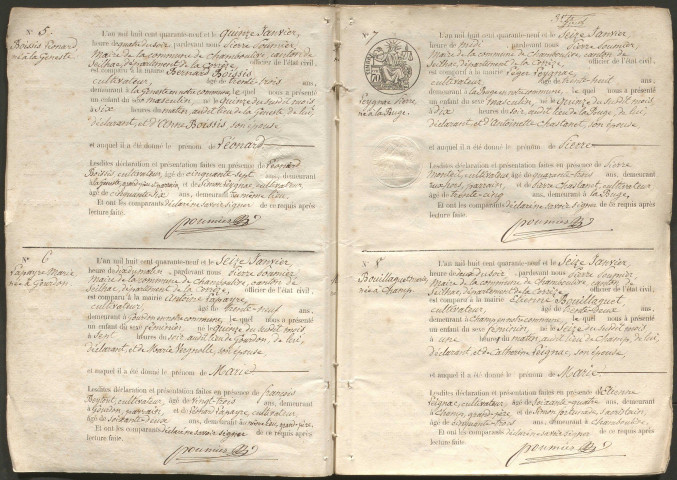 N° 5.
Boissis Léonard
né à la Geneste.
L'an mil huit cent quarante-neuf et le quinze Janvier,
heure de quatre du soir, pardevant nous Pierre Poumier
Maire de la commune de Chamboulive, canton de
Seilhac, département de la Corrèze officier de l'état civil,
est comparu à la mairie Bernard Boissis
cultivateur, âgé de trente trois ans,
demeurant à la Geneste en notre commune, le quel nous a présenté
un enfant du sexe masculin, né le quinze du susdit mois,
à six heures du matin, audit lieu de la Geneste, de lui,
déclarant, et d'Anne Boissis, son épouse
et auquel il a été donné le prénom de Léonard
Lesdites déclaration et présentation faites en présence de Léonard
Boissis, cultivateur, âgé de cinquante-sept ans, demeurant
à la Geneste, grand-père et parrain, et de Simon Peignac, cultivateur
âgé de cinquante-six ans, demeurant au même lieu.
Et ont les comparants déclaré ne savoir signer de ce requis après
lecture faite.
Poumier
N° 6
Lapayre Marie
née à Gourdon.
L'an mil huit cent quarante-neuf et le Seize Janvier,
heure de dix du matin, pardevant nous Pierre Poumier
Maire de la commune de Chamboulive, canton de
Seilhac, département de la Corrèze, officier de l'état civil,
est comparu à la mairie Antoine Lapayre,
cultivateur, âgé de trente-neuf ans,
demeurant à Gourdon en notre commune, le quel nous a présenté
un enfant du sexe féminin, née le quinze du susdit mois
à sept heures du soir audit lieu de Gourdon, de lui,
déclarant, et de Marie Vergnolle, son épouse
et auquel il a été donné le prénom de Marie
Lesdites déclaration et présentation faites en présence de françois
cultivateur, âgé de vingt-trois ans, demeurant
à Gourdon, parrain, et de Léonard Lapayre, cultivateur,
âgé de soixante-deux ans, demeurant au même lieu, grand-père.
Et ont les comparants déclaré ne savoir signer de ce requis après
lecture faite.
Poumier
N° 7
Peignac Pierre
né à la Pouge.
L'an mil huit cent quarante-neuf et le Seize Janvier
heure de midi, pardevant nous Pierre Poumier,
Maire de la commune de Chamboulive, canton de
Seilhac, département de la Corrèze officier de l'état civil,
est comparu à la mairie Léger Peignac,
cultivateur, âgé de trente-huit ans,
demeurant à la Pouge en notre commune, le quel nous a présenté
un enfant du sexe masculin, né le quinze du susdit mois, à
dix heures du soir, audit lieu de la Pouge, de lui,
déclarant, et d'Antoinette Chastanet, son épouse
et auquel il a été donné le prénom de Pierre
Lesdites déclaration et présentation faites en présence de Pierre
cultivateur, âgé de quarante-trois ans, demeurant
parrain, et de Pierre Chastanet, cultivateur
âgé de trente-cinq ans, demeurant à la Pouge.
Et ont les comparants déclaré ne savoir signer de ce requis après
lecture faite.
Poumier
N° 8
Bouillaguet Marie,
née à Champ.
L'an mil huit cent quarante-neuf et le Seize Janvier,
heure de deux du soir, pardevant nous Pierre Poumier
Maire de la commune de Chamboulive, canton de
Seilhac, département de la Corrèze, officier de l'état civil,
est comparu à la mairie Etienne Bouillaguet,
cultivateur, âgé de trente-deux ans,
demeurant à Champ en notre commune, le quel nous a présenté
un enfant du sexe féminin, née le Seize du susdit mois
à une heure du matin, audit lieu de Champ, de lui,
déclarant, et de Catherine Peignac, son épouse,
et auquel il a été donné le prénom de Marie
Lesdites déclaration et présentation faites en présence de Etienne
Peignac, cultivateur, âgé de soixante-quatre ans, demeurant
à Champ, grand-père, et de Simon sacristain,
âgé de cinquante-trois ans, demeurant à Chamboulive.
Et ont les comparants déclaré ne savoir signer de ce requis après
lecture faite.
Poumier